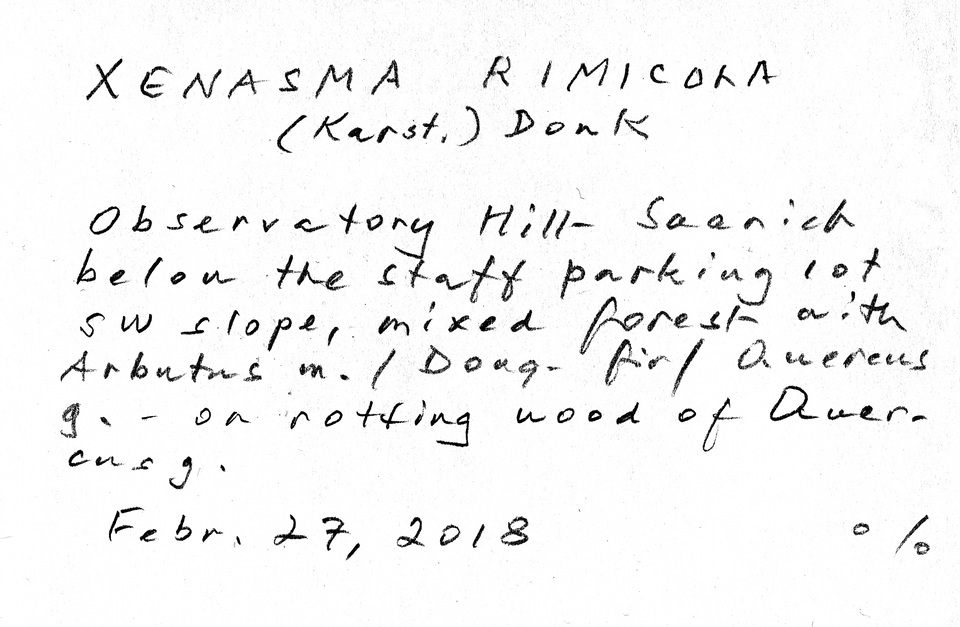 XENASMA RIMICOLA
(Karst.) Donk
Observatory Hill - Saanich
below the staff parking lot
SW slope, mixed forest with
Arbutus m. / Doug. fir / Quercus
g. - on rotting wood of Quer-
cus g.
Febr. 27, 2018 %